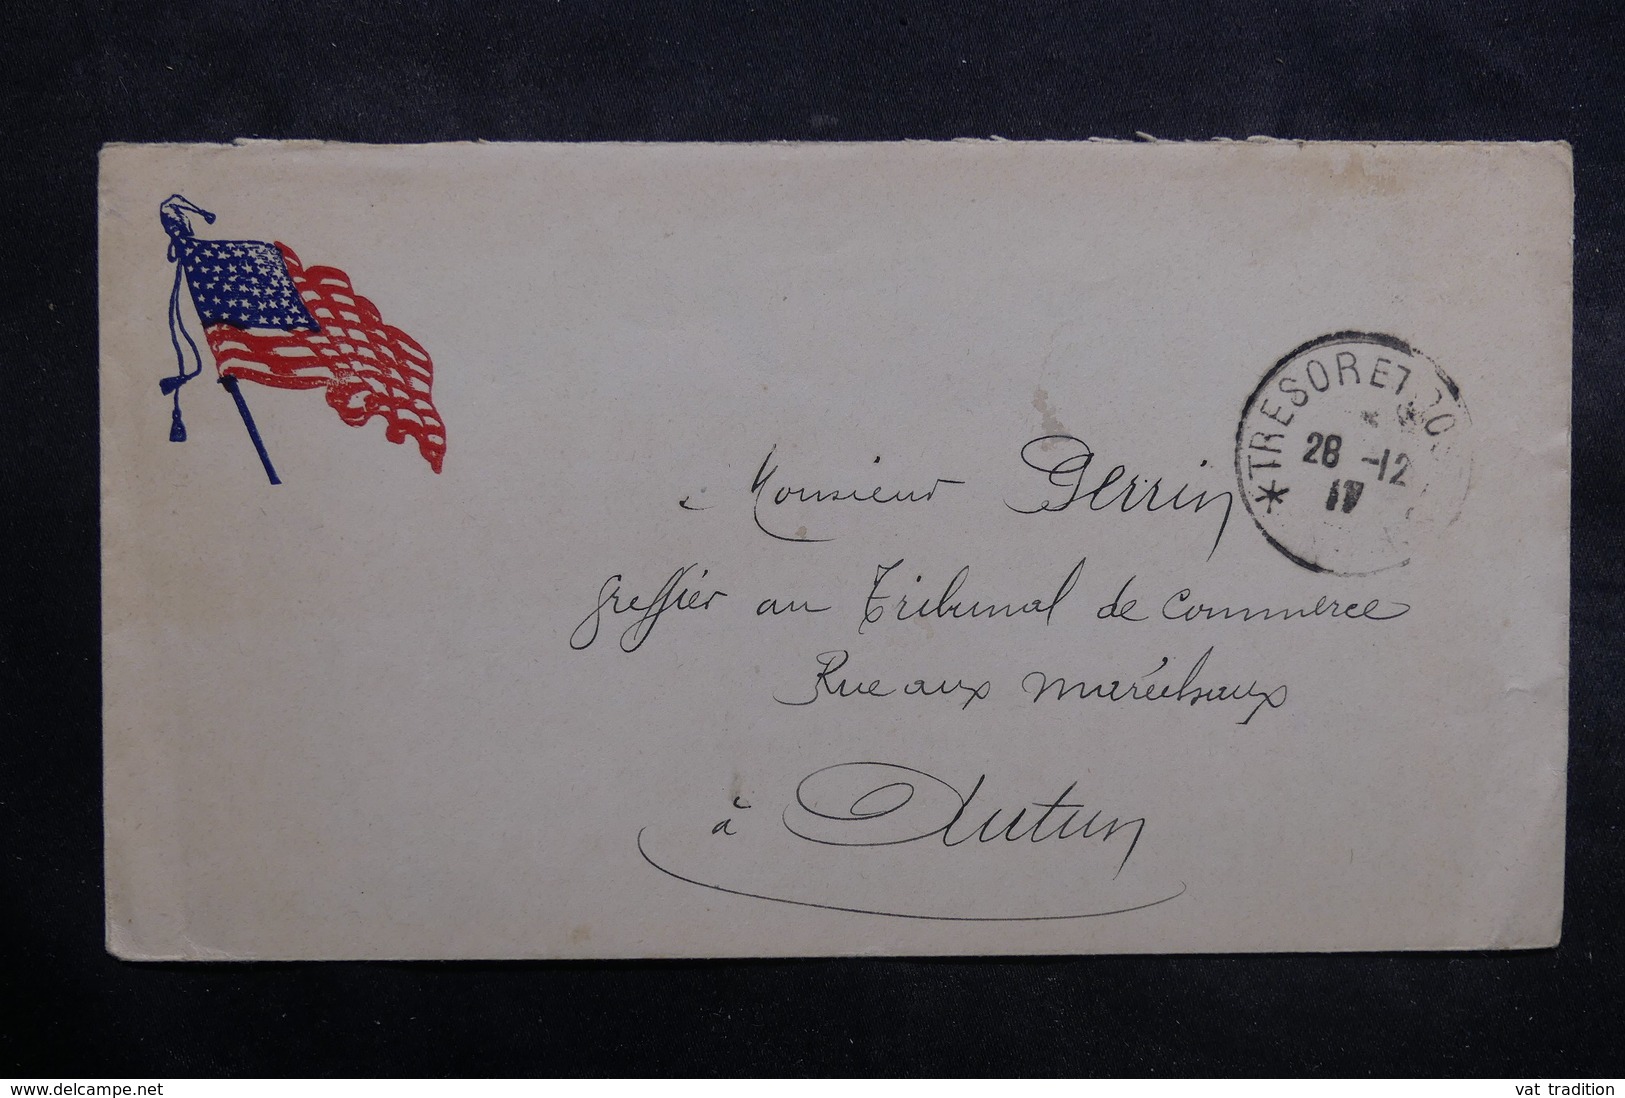 * TRESOR ET
28 -12
17
Monsieur Perrin
greffier au Tribunal de Commerce
Rue aux Maréchaux
à Autun
www.delcampe.net
vat_tradition